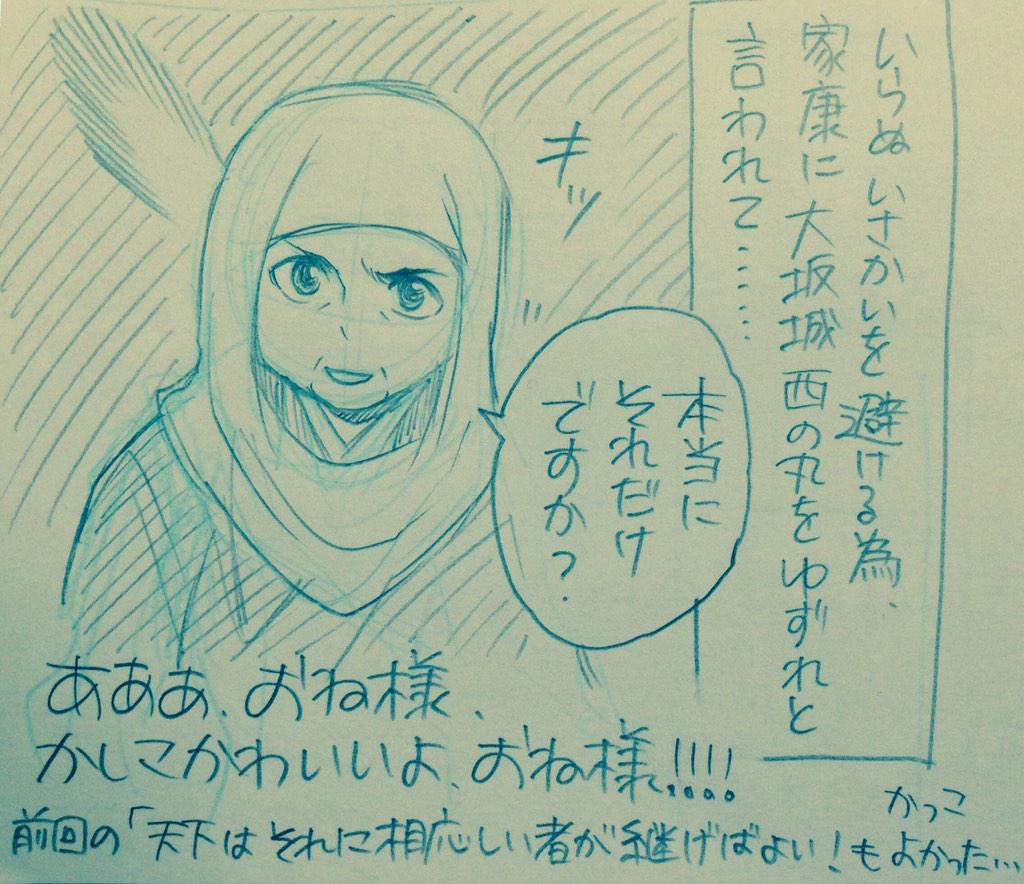 いらぬいさかいを避ける為、
家康に大坂城西の丸をゆずれと
言われて……
キッ
本当に
それだけ
ですか?
あああ、おね様、
かしこかわいいよ、おね様!!!!
かっこ
前回の「天下はそれに相応しい者が継げばよい!もよかった…